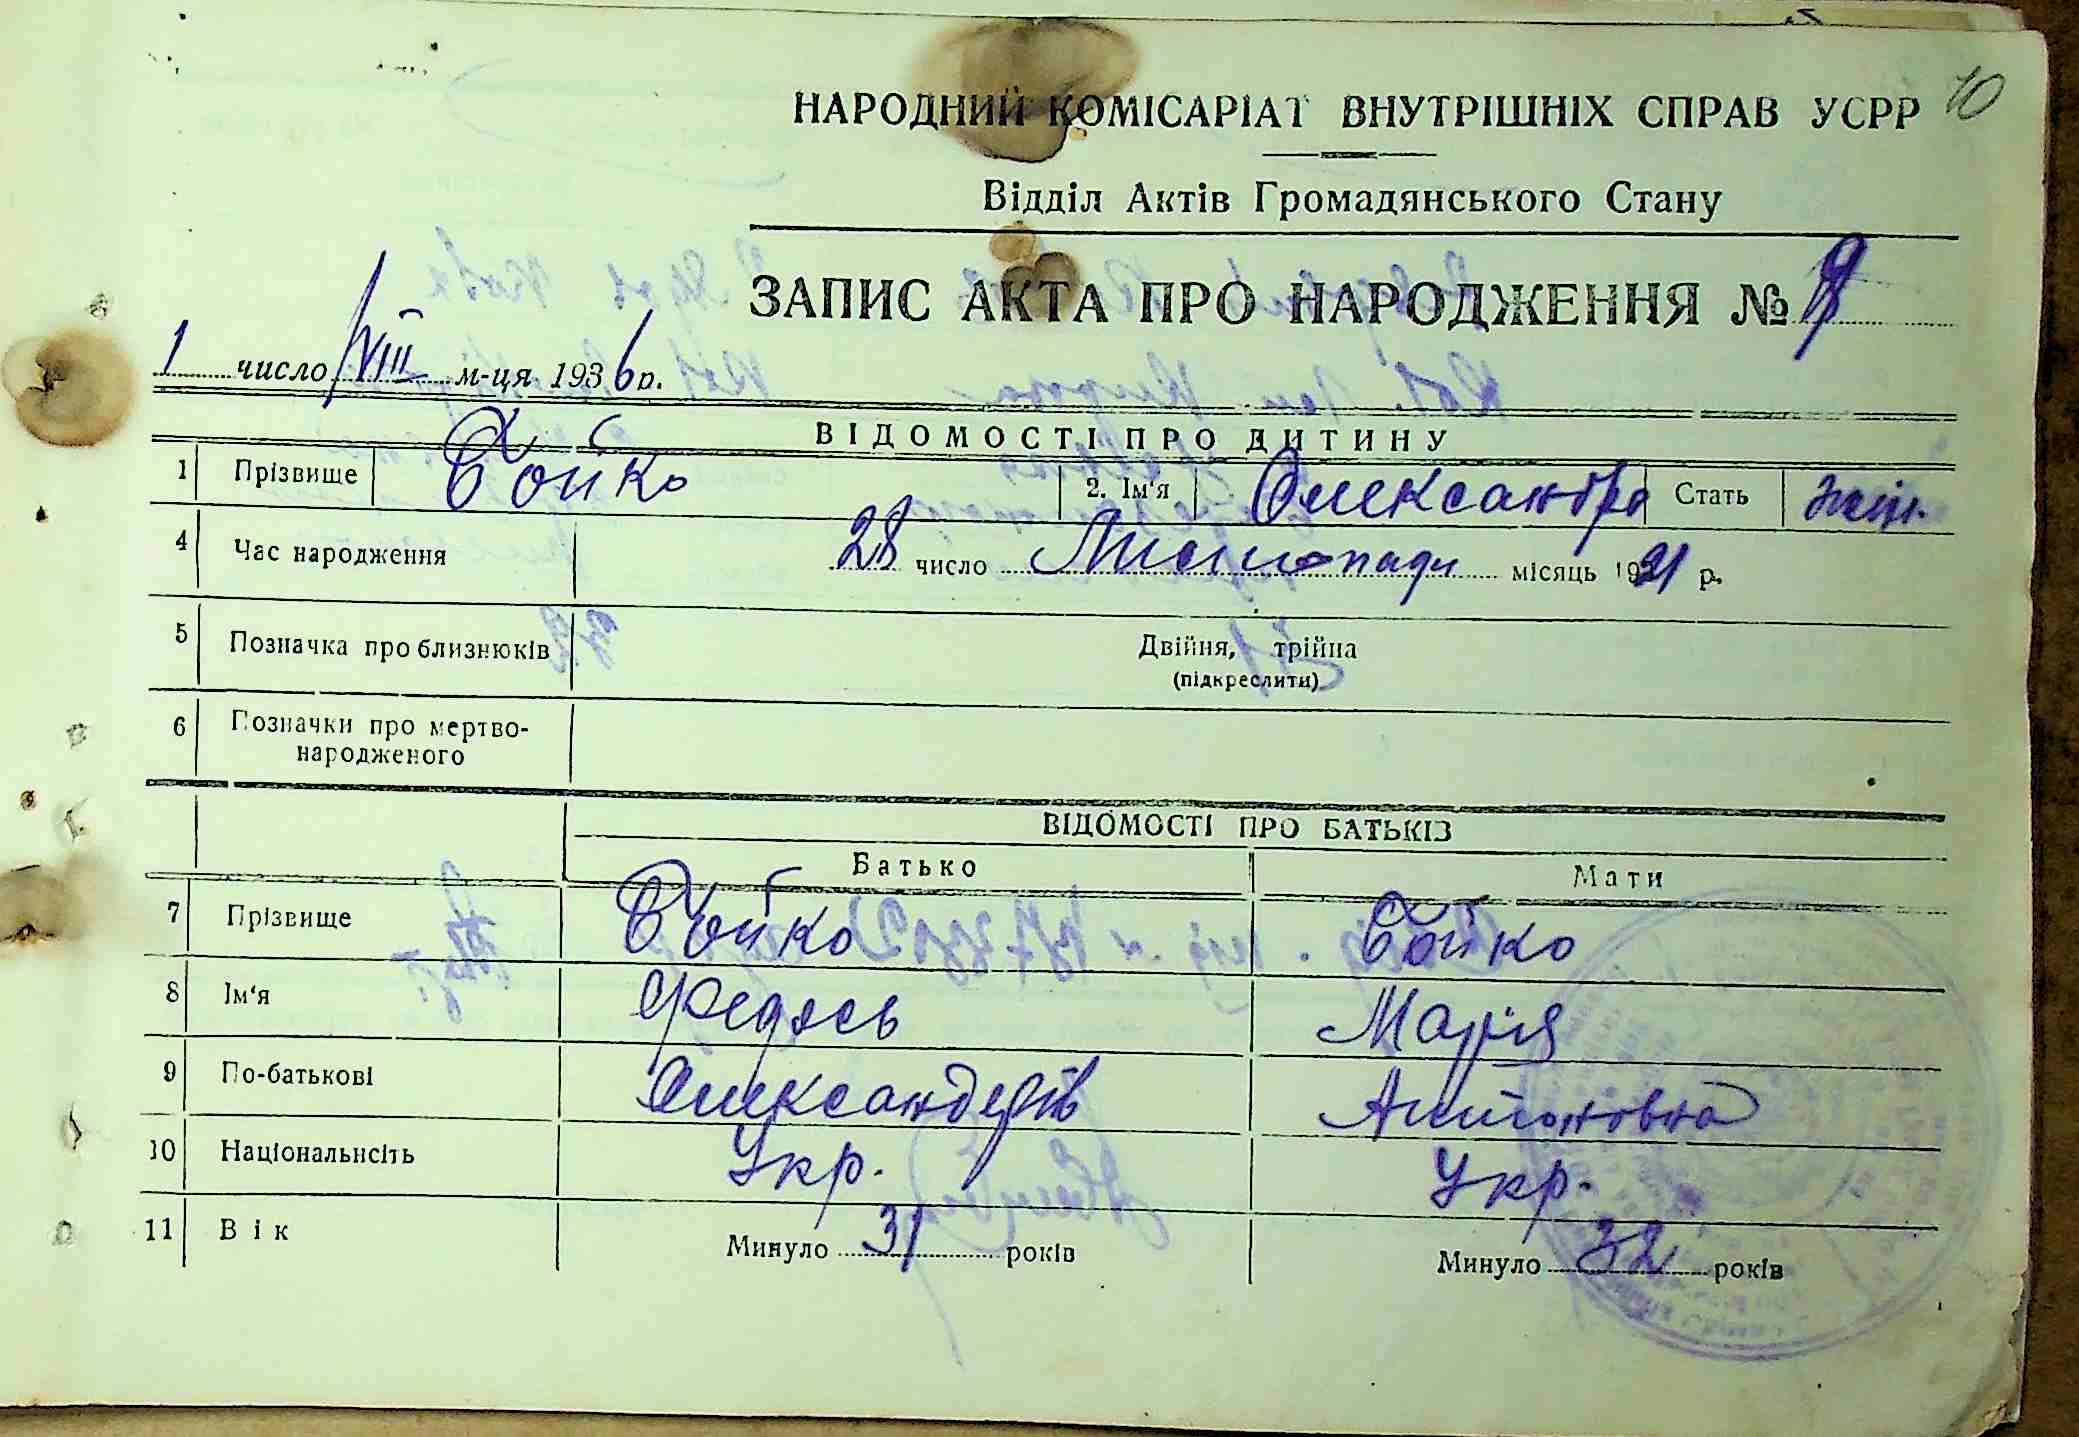 10
НАРОДНИЙ КОМІСАРІАТ ВНУТРІШНІХ СПРАВ УСРР
Відділ Актів Громадянського Стану
ЗАПИС АКТА ПРО НАРОДЖЕННЯ № 9
1 число VIII м-ця 1936 р.
ВІДОМОСТІ ПРО ДИТИНУ
1 Прізвище Бойко 2. Ім'я Олександра Стать жін.
4 Час народження 28 число Листопада місяць 1921 р.
5 Позначка про близнюків Двійня, трійна
(підкреслити)
6 Позначки про мертво-
народженого
ВІДОМОСТІ ПРО БАТЬКІВ
Батько Мати
7 Прізвище Бойко Бойко
8 Ім'я Федось Марія
9 По-батькові Антоновна
10 Національнсіть Укр. Укр.
11 Вік Минуло 31 років Минуло 32 років